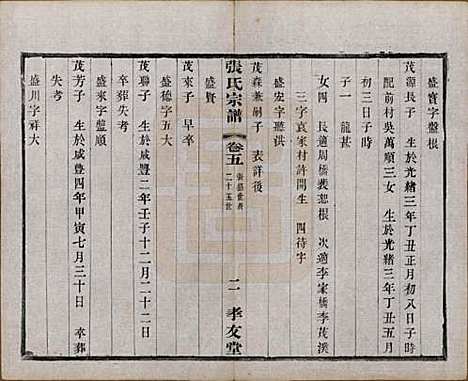 盛寶字盤根
茂源長子 生於光緒三年丁丑正月初八日子時
配前村吳萬順三女 生於光緒三年丁丑五月
初三日子時
子一 龍甚
女四 長適周橋裴恕根 次適李家橋李茂溪
三字袁家村許開生 四待字
盛安字聽洪
茂森兼嗣子 表詳後
張氏宗譜 卷五 世表 二十五世 二 孝友堂
盛賢
茂來子 早卒
盛德字五大
茂聯子 生於咸豐二年壬子十二月二十二日
卒葬失考
盛來字盤順
茂芳子 生於咸豐四年甲寅七月三十日 卒葬
失考
盛川字祥大